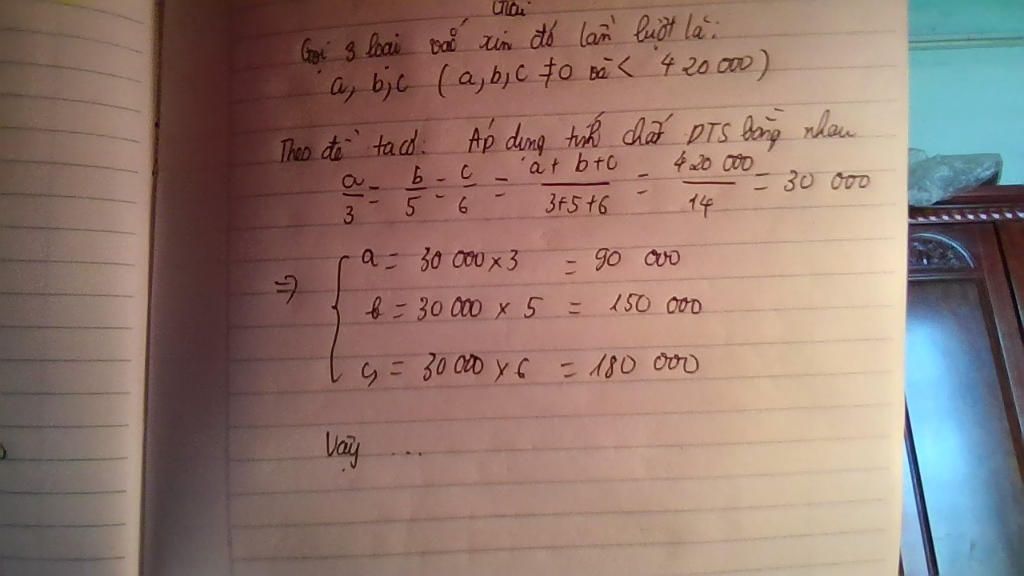 Giải
Gọi 3 loại vắc xin đó lần lượt là:
a, b, c ( a, b, c ≠ 0 và < 420 000 )
Theo đề ta có: Áp dụng tính chất DTS bằng nhau
a/3 = b/5 = c/6 = a + b + c/3+5+6 = 420 000/14 = 30 000
=> { a = 30 000 x 3 = 90 000
b = 30 000 x 5 = 150 000
c = 30 000 x 6 = 180 000
Vậy ...